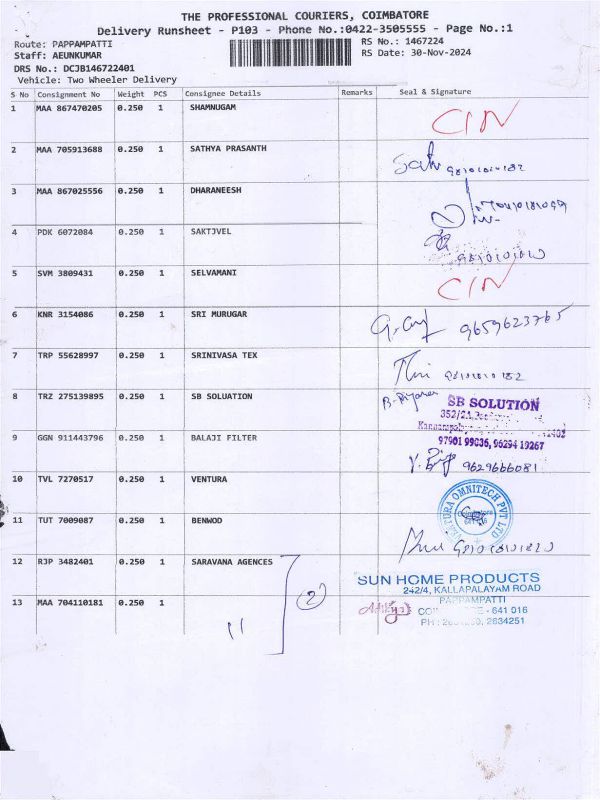 THE PROFESSIONAL COURIERS, COIMBATORE
Delivery Runsheet - P103 - Phone No.:0422-3505555 - Page No.:1
Route: PAPPAMPATTI
RS No.: 1467224
Staff: AEUNKUMAR
RS Date: 30-Nov-2024
DRS No.: DCJB146722401
Vehicle: Two Wheeler Delivery
S No Consignment No Weight PCS Consignee Details Remarks Seal & Signature
1 MAA 867470205 0.250 1 SHAMNUGAM
2 MAA 705913688 0.250 1 SATHYA PRASANTH
3 MAA 867025556 0.250 1 DHARANEESH
4 PDK 6072084 0.250 1 SAKTJVEL
5 SVM 3809431 0.250 1 SELVAMANI
6 KNR 3154086 0.250 1 SRI MURUGAR 9659623765
7 TRP 55628997 0.250 1 SRINIVASA TEX
8 TRZ 275139895 0.250 1 SB SOLUATION
SB SOLUTION
97901 99836, 96294 19267
9 GGN 911443796 0.250 1 BALAJI FILTER 9629666081
10 TVL 7270517 0.250 1 VENTURA
VENTURA OMNITECH PVT LTD
11 TUT 7009087 0.250 1 BENWOD
12 RJP 3482401 0.250 1 SARAVANA AGENCES
(2)
SUN HOME PRODUCTS
242/4, KALLAPALAYAM ROAD
PAPPAMPATTI
641 016
2634251
13 MAA 704110181 0.250 1